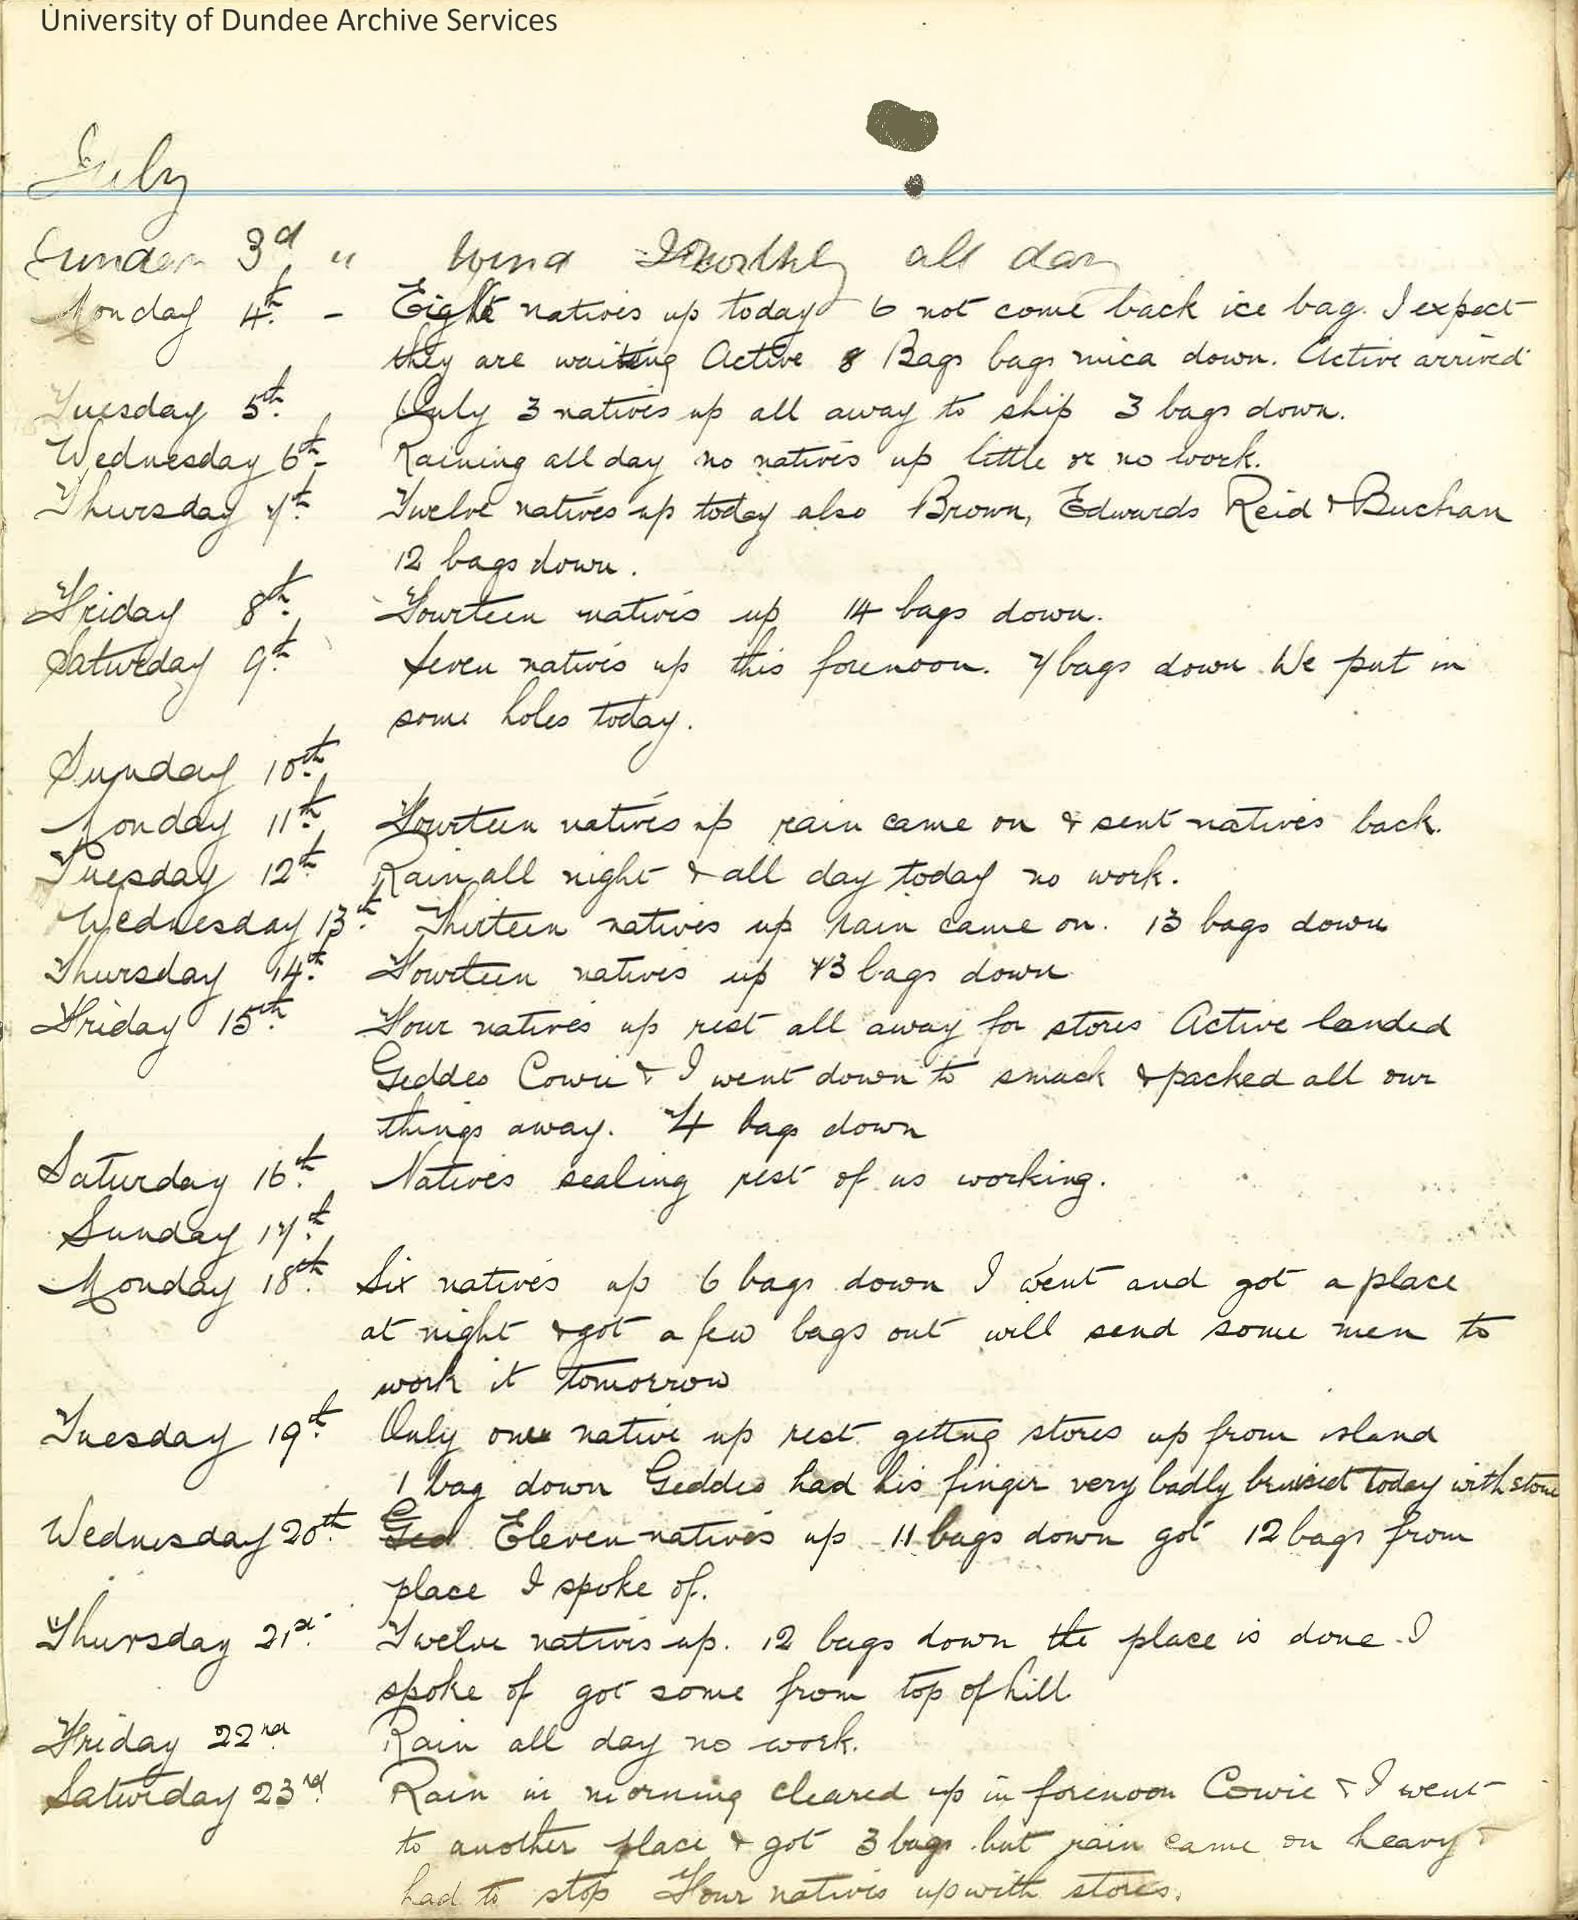 University of Dundee Archive Services
July
Sunday 3d " Wind Northly all day
Monday 4th - Eight natives up today 6 not come back ice bag. I expect
they are waiting Active 8 Bags bags mica down. Active arrived
Tuesday 5th. Only 3 natives up all away to ship 3 bags down.
Wednesday 6th - Raining all day no natives up little or no work.
Thursday 7th. Twelve natives up today also Brown, Edwards Reid & Buchan
12 bags down.
Friday 8th. Fourteen natives up 14 bags down.
Saturday 9th. Seven natives up this forenoon. 7 bags down We put in
some holes today.
Sunday 10th.
Monday 11th. Fourteen natives up rain came on & sent natives back.
Tuesday 12th. Rain all night & all day today no work.
Wednesday 13th. Thirteen natives up rain came on. 13 bags down
Thursday 14th. Fourteen natives up 13 bags down
Friday 15th. Four natives up rest all away for stores Active landed
Geddes Cowie & I went down to smack & packed all our
things away. 4 bags down
Saturday 16th. Natives sealing rest of us working.
Sunday 17th.
Monday 18th. Six natives up 6 bags down I went and got a place
at night & got a few bags out will send some men to
work it tomorrow
Tuesday 19th. Only one native up rest getting stores up from island
1 bag down Geddes had his finger very badly bruised today with stone
Wednesday 20th. Ged Eleven natives up 11 bags down got 12 bags from
place I spoke of.
Thursday 21st. Twelve natives up. 12 bags down the place is done I
spoke of got some from top of hill
Friday 22nd. Rain all day no work.
Saturday 23rd. Rain in morning cleared up in forenoon Cowie & I went
to another place & got 3 bags but rain came on heavy &
had to stop Four natives up with stores.